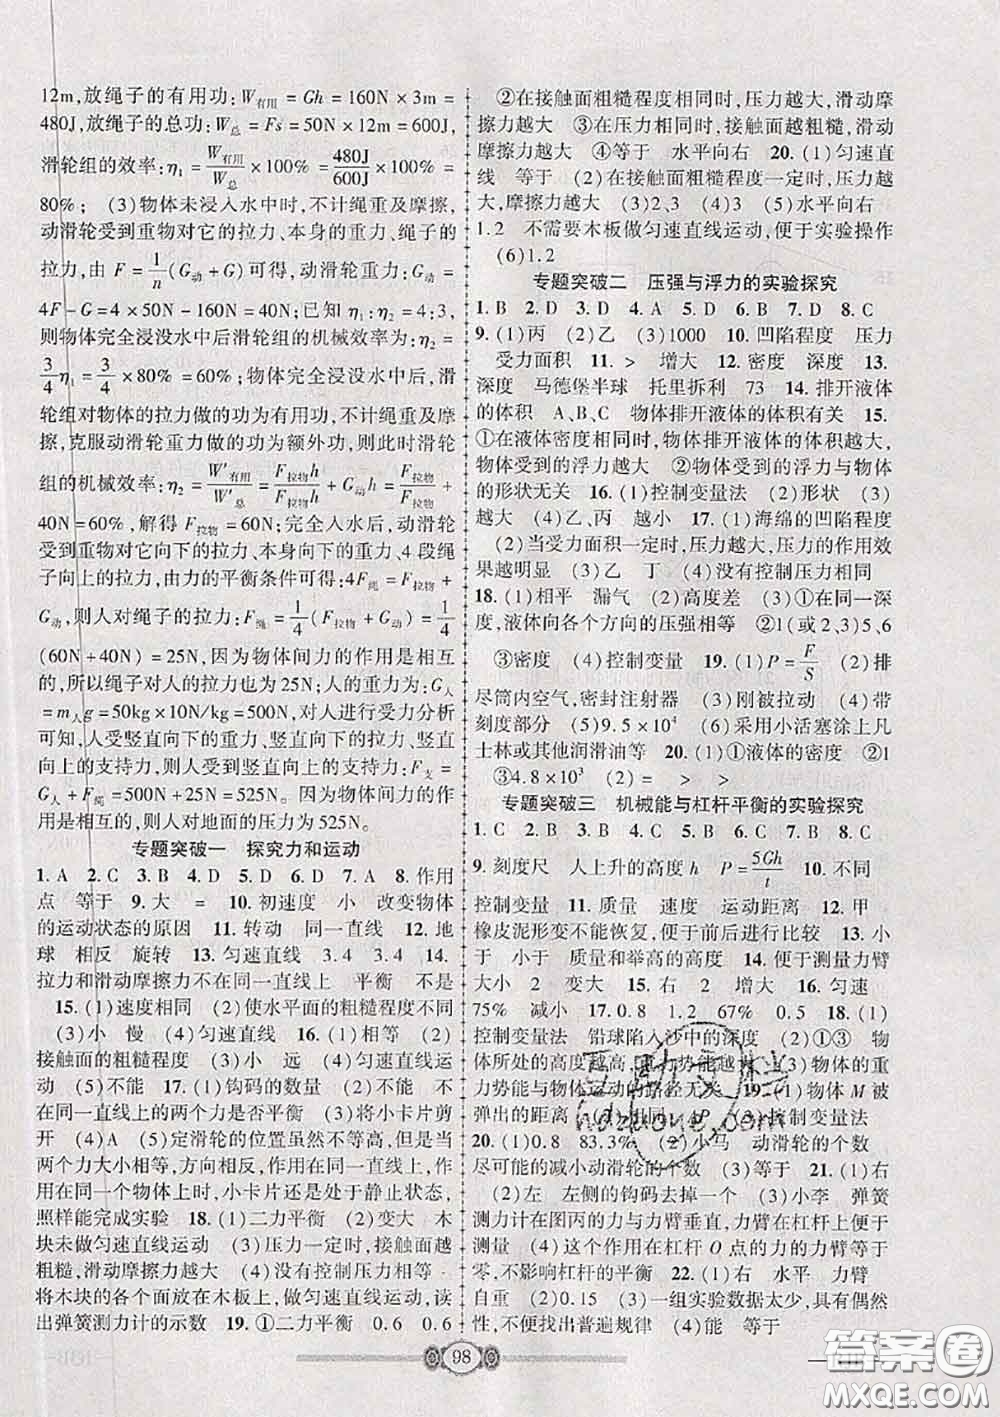 12m,放绳子的有用功:W有用=Gh=160N×3m=
480J,放绳子的总功:W总=Fs=50N×12m=600J,
滑轮组的效率:η1=W有用/W总×100%=480J/600J×100%=
80%; (3)物体未浸入水中时,不计绳重及摩擦,
动滑轮受到重物对它的拉力、本身的重力、绳子的
拉力,由 F=1/n(G动+G)可得,动滑轮重力:G动=
4F-G=4×50N-160N=40N;已知 η1:η2=4:3,
则物体完全浸没水中后滑轮组的机械效率:η2=
3/4η1=3/4×80%=60%;物体完全浸没水中后,滑
轮组对物体的拉力做的功为有用功,不计绳重及摩
擦,克服动滑轮重力做的功为额外功,则此时滑轮
组的机械效率:η2=W′有用/W′总=F拉物h/F拉物h+G动h=F拉物/F拉物+
40N=60%,解得 F拉物=60N;完全入水后,动滑轮
受到重物对它向下的拉力、本身向下的重力、4 段绳
子向上的拉力,由力的平衡条件可得:4F绳=F拉物+
G动,则人对绳子的拉力:F绳=1/4(F拉物+G动)=1/4
(60N+40N)=25N,因为物体间力的作用是相互
的,所以绳子对人的拉力也为25N;人的重力为:G人
=m人g=50kg×10N/kg=500N,对人进行受力分析
可知,人受竖直向下的重力、绳竖直向下的拉力、竖直
向上的支持力,则人受到竖直向上的支持力:F支=
G人+F绳=500N+25N=525N。因为物体间力的作
用是相互的,则人对地面的压力为525N。
专题突破一 探究力和运动
1. A 2. C 3. B 4. D 5. D 6. D 7. A 8. 作用
点 等于 9. 大 = 10. 初速度 小 改变物体
的运动状态的原因 11. 转动 同一直线 12. 地
球 相反 旋转 13. 匀速直线 3.4 3.4 14.
拉力和滑动摩擦力不在同一直线上 平衡 不是
15. (1)速度相同 (2)使水平面的粗糙程度不同
(3)小 慢 (4)匀速直线 16. (1)相等 (2)
接触面的粗糙程度 (3)小 远 (4)匀速直线运
动 (5)不能 17. (1)钩码的数量 (2)不能 不
在同一直线上的两个力是否平衡 (3)将小卡片剪
开 (4)A (5)定滑轮的位置虽然不等高,但是当
两个力大小相等,方向相反,作用在同一直线上,作
用在同一个物体上时,小卡片还是处于静止状态,
照样能完成实验 18. (1)二力平衡 (2)变大 木
块未做匀速直线运动 (3)压力相同时,接触面越
粗糙,滑动摩擦力越大 (4)没有控制压力相同
将木块的各个面放在木板上,做匀速直线运动,读
出弹簧测力计的示数 19. ①二力平衡 0.6 0.6
②在接触面粗糙程度相同时,压力越大,滑动摩
擦力越大 ③在压力相同时,接触面越粗糙,滑动
摩擦力越大 ④等于 水平向右 20. (1)匀速直
线 等于 (2)在接触面粗糙程度一定时,压力越
大,摩擦力越大 (3)2、3 (4)3 (5)水平向右
1.2 不需要木板做匀速直线运动,便于实验操作
(6)1.2
专题突破二 压强与浮力的实验探究
1. B 2. D 3. D 4. A 5. D 6. B 7. D 8. C
9. (1)丙 (2)乙 (3)1000 10. 凹陷程度 压力
受力面积 11. > 增大 12. 密度 深度 13.
深度 马德堡半球 托里拆利 73 14. 排开液体
的体积 A、B、C 物体排开液体的体积有关 15.
①在液体密度相同时,物体排开液体的体积越大,
物体受到的浮力越大 ②物体受到的浮力与物体
的形状无关 16. (1)控制变量法 (2)形状 (3)
越大 (4)乙、丙 越小 17. (1)海绵的凹陷程度
(2)当受力面积一定时,压力越大,压力的作用效
果越明显 (3)乙 丁 (4)没有控制压力相同
18. (1)相平 漏气 (2)高度差 (3)①在同一深
度,液体向各个方向的压强相等 ②1(或2、3)5、6
③密度 (4)控制变量 19. (1)P=F/S (2)排
尽筒内空气,密封注射器 (3)刚被拉动 (4)带
刻度部分 (5)9.5×10⁴ (6)采用小活塞涂上凡
士林或其他润滑油等 20. (1)①液体的密度 ②1
③4.8×10³ (2)= > >
专题突破三 机械能与杠杆平衡的实验探究
1. C 2. B 3. B 4. C 5. D 6. C 7. D 8. C
9. 刻度尺 人上升的高度 h P=5Gh/t 10. 不同
控制变量 11. 质量 速度 运动距离 12. 甲
橡皮泥形变不能恢复,便于前后进行比较 13. 小
于 小于 质量和举高的高度 14. 便于测量力臂
大小 2 增大 15. 右 2 增大 16. 匀速
75% 减小 17. 0.8 1.2 67% 18. (1)
控制变量法 铅球陷入沙中的深度 (2)①③ 物
体所处的高度越高,重力势能越大 (3)物体的重
力势能与物体运动的路径无关 19. (1)物体 M 被
弹出的距离 (2)相同 P (3)控制变量法
20. (1)0.8 83.3% (2)小马 动滑轮的个数
尽可能的减小动滑轮的个数 (3)等于 21. (1)右
(2)左 左侧的钩码去掉一个 (3)小李 弹簧
测力计在图丙的力与力臂垂直,力臂在杠杆上便于
测量 (4)这个作用在杠杆 O 点的力的力臂等于
零,不影响杠杆的平衡 22. (1)右 水平 力臂
自重 (2)0.15 (3)一组实验数据太少,具有偶然
性,不便找出普遍规律 (4)能 等于
98
答案圈
MXQE.COM